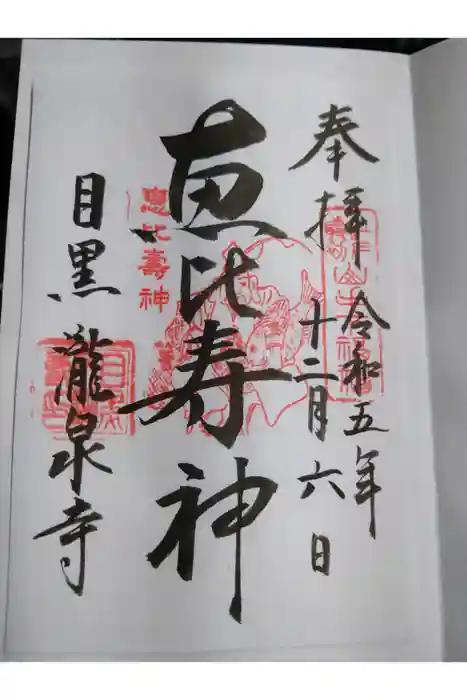 奉拝
令和五年
十二月六日
恵比寿神
恵比壽神
目黒 瀧泉寺